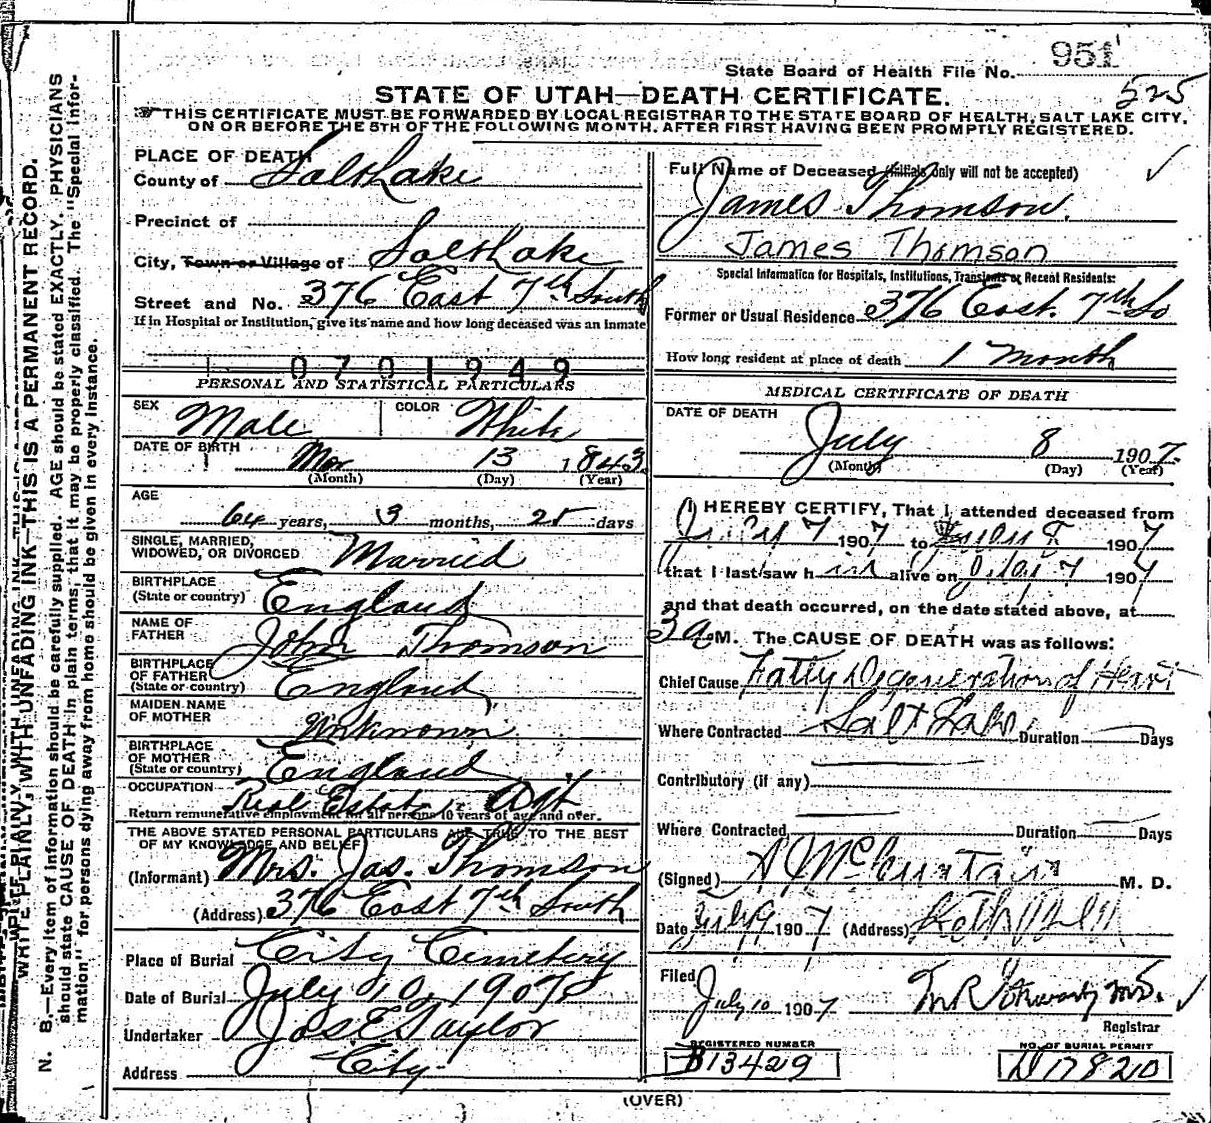 951
State Board of Health File No.
525
STATE OF UTAH—DEATH CERTIFICATE.
THIS CERTIFICATE MUST BE FORWARDED BY LOCAL REGISTRAR TO THE STATE BOARD OF HEALTH, SALT LAKE CITY,
ON OR BEFORE THE 5TH OF THE FOLLOWING MONTH. AFTER FIRST HAVING BEEN PROMPTLY REGISTERED.
WRITE PLAINLY, WITH UNFADING INK—THIS IS A PERMANENT RECORD.
N. B.—Every item of information should be carefully supplied. AGE should be stated EXACTLY. PHYSICIANS
should state CAUSE OF DEATH in plain terms, that it may be properly classified. The "Special Infor-
mation" for persons dying away from home should be given in every instance.
PLACE OF DEATH
County of Salt Lake
Precinct of
City, Town or Village of Salt Lake
Street and No. 376 East 7th South
If in Hospital or Institution, give its name and how long deceased was an Inmate
0701949
PERSONAL AND STATISTICAL PARTICULARS
SEX Male COLOR White
DATE OF BIRTH Mar 13 1843
(Month) (Day) (Year)
AGE
64 years, 3 months, 25 days
SINGLE, MARRIED,
WIDOWED, OR DIVORCED Married
BIRTHPLACE
(State or country) England
NAME OF
FATHER John Thomson
BIRTHPLACE
OF FATHER
(State or country) England
MAIDEN NAME
OF MOTHER Unknown
BIRTHPLACE
OF MOTHER
(State or country) England
OCCUPATION Real Estate Agt
Return remunerative employment for all persons 10 years of age and over.
THE ABOVE STATED PERSONAL PARTICULARS ARE TRUE TO THE BEST
OF MY KNOWLEDGE AND BELIEF
(Informant) Mrs. Jas. Thomson
(Address) 376 East 7th South
Place of Burial City Cemetery
Date of Burial July 10, 1907
Undertaker Jos E Taylor
Address City
Full Name of Deceased (Initials only will not be accepted)
James Thomson.
James Thomson
Special Information for Hospitals, Institutions, Transients or Recent Residents:
Former or Usual Residence 376 East. 7th So
How long resident at place of death 1 Month
MEDICAL CERTIFICATE OF DEATH
DATE OF DEATH
July 8 1907.
(Month) (Day) (Year)
I HEREBY CERTIFY, That I attended deceased from
July 7 1907 to July 8 1907
that I last saw him alive on July 7 1907
and that death occurred, on the date stated above, at
3 a. M. The CAUSE OF DEATH was as follows:
Chief Cause Fatty Degeneration of Heart
Where Contracted Salt Lake Duration Days
Contributory (if any)
Where Contracted Duration Days
(Signed) M. D.
Date July 9 1907 (Address)
Filed
July 10 1907
Registrar
REGISTERED NUMBER
B13429
NO. OF BURIAL PERMIT
D17820
(OVER)